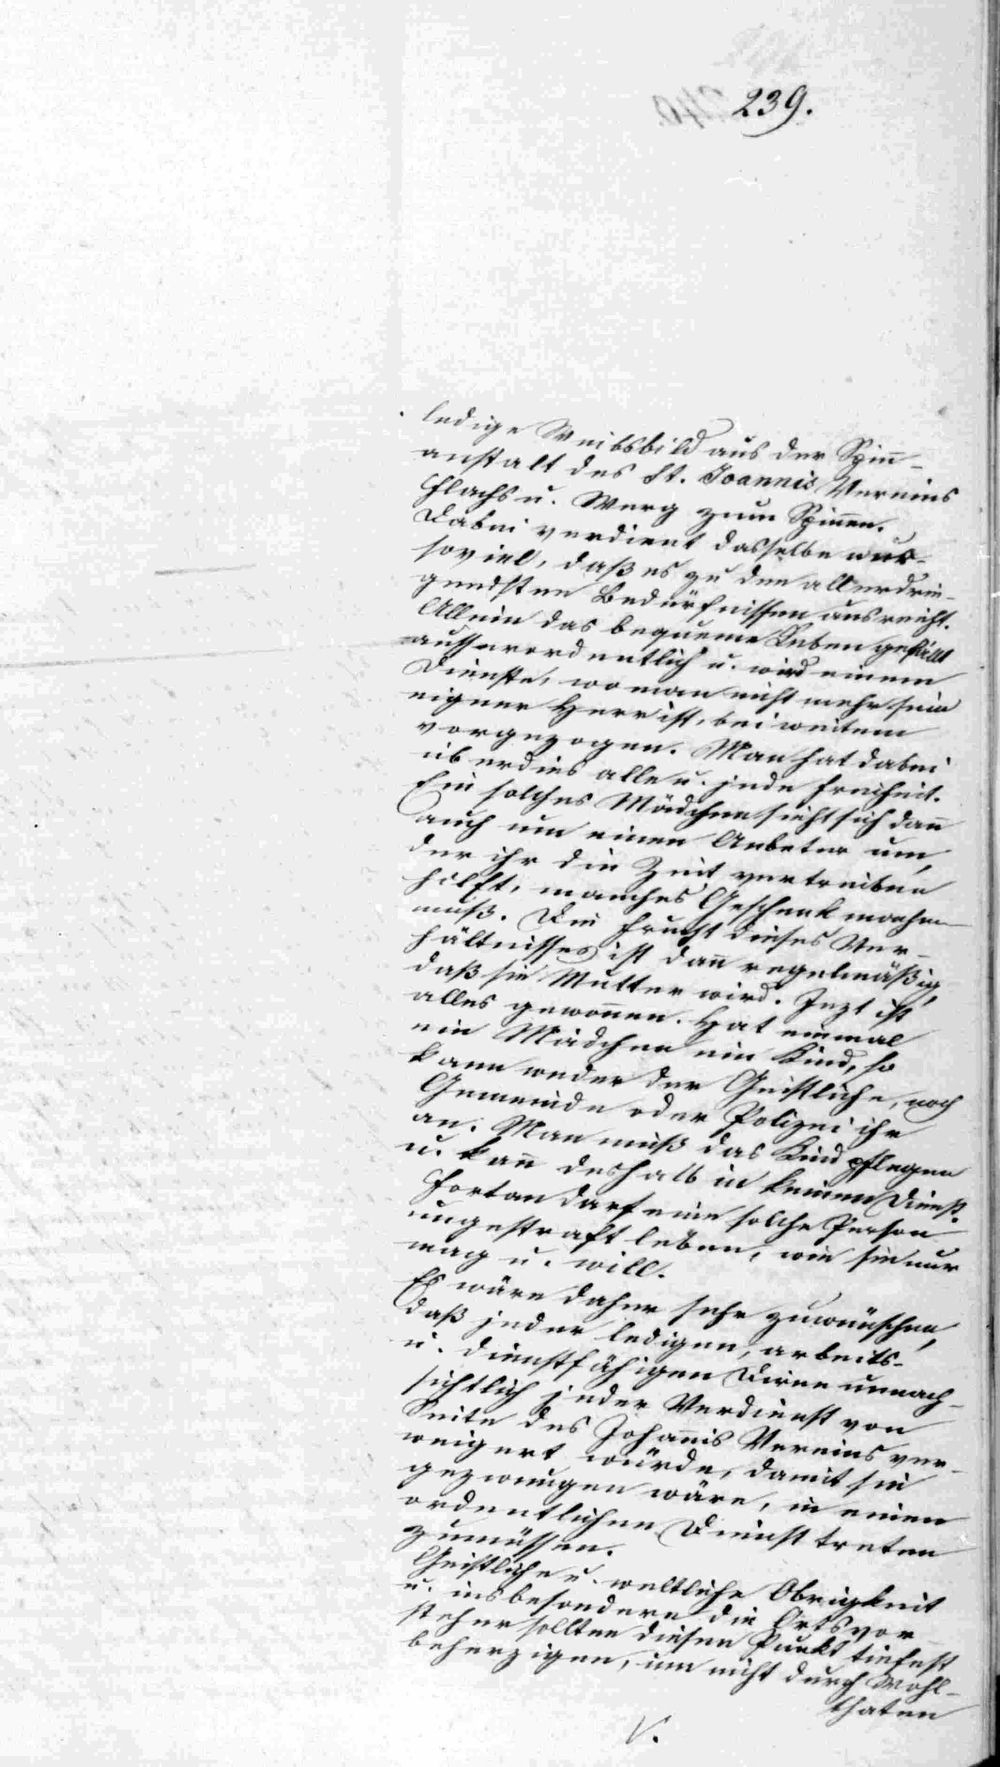 239.
ledige Weibsbild aus der Spin̄-
anstalt des St. Joannis Vereins
Flachs u. Werg zum Spinnen.
Dabei verdient dasselbe nur
soviel, daß es zu den allerdrin-
gendsten Bedürfnissen ausreicht.
Allein das bequeme Leben gefällt
ausserordentlich u. wird einem
Dienste, wo man nicht mehr sein
eigener Herr ist, bei weitem
vorgezogen. Man hat dabei
überdies alle u. jede Freiheit.
Ein solches Mädchen sieht sich dan̄
auch um einen Anbeter um,
der ihr die Zeit vertreiben
hilft, manches Geschenk machen
muß. Die Frucht dieses Ver-
hältnisses ist dan̄ regelmäßig,
daß sie Mutter wird. Jezt ist
alles gewon̄en. Hat einmal
ein Mädchen ein Kind, so
kann weder der Geistliche, noch
Gemeinde oder Polizei ihr
an. Man muß das Kind pflegen
u. kan̄ deshalb in keinen Dienst.
Fortan darf eine solche Person
ungestraft leben, wie sie nur
mag u. will.
Es wäre daher sehr zuwünschen,
daß jeder ledigen, arbeits-
u. dienstfähigen Dirne unnach-
sichtlich jeder Verdienst von
Seite des Johan̄is Vereins ver-
weigert würde, damit sie
gezwungen wäre, in einen
ordentlichen Dienst treten
zumüssen.
Geistliche u. weltliche Obrigkeit
u. insbesondere die Ortsvor-
steher sollten diesen Punkt tiefest
beherzigen, um nicht durch Wohl-
thaten